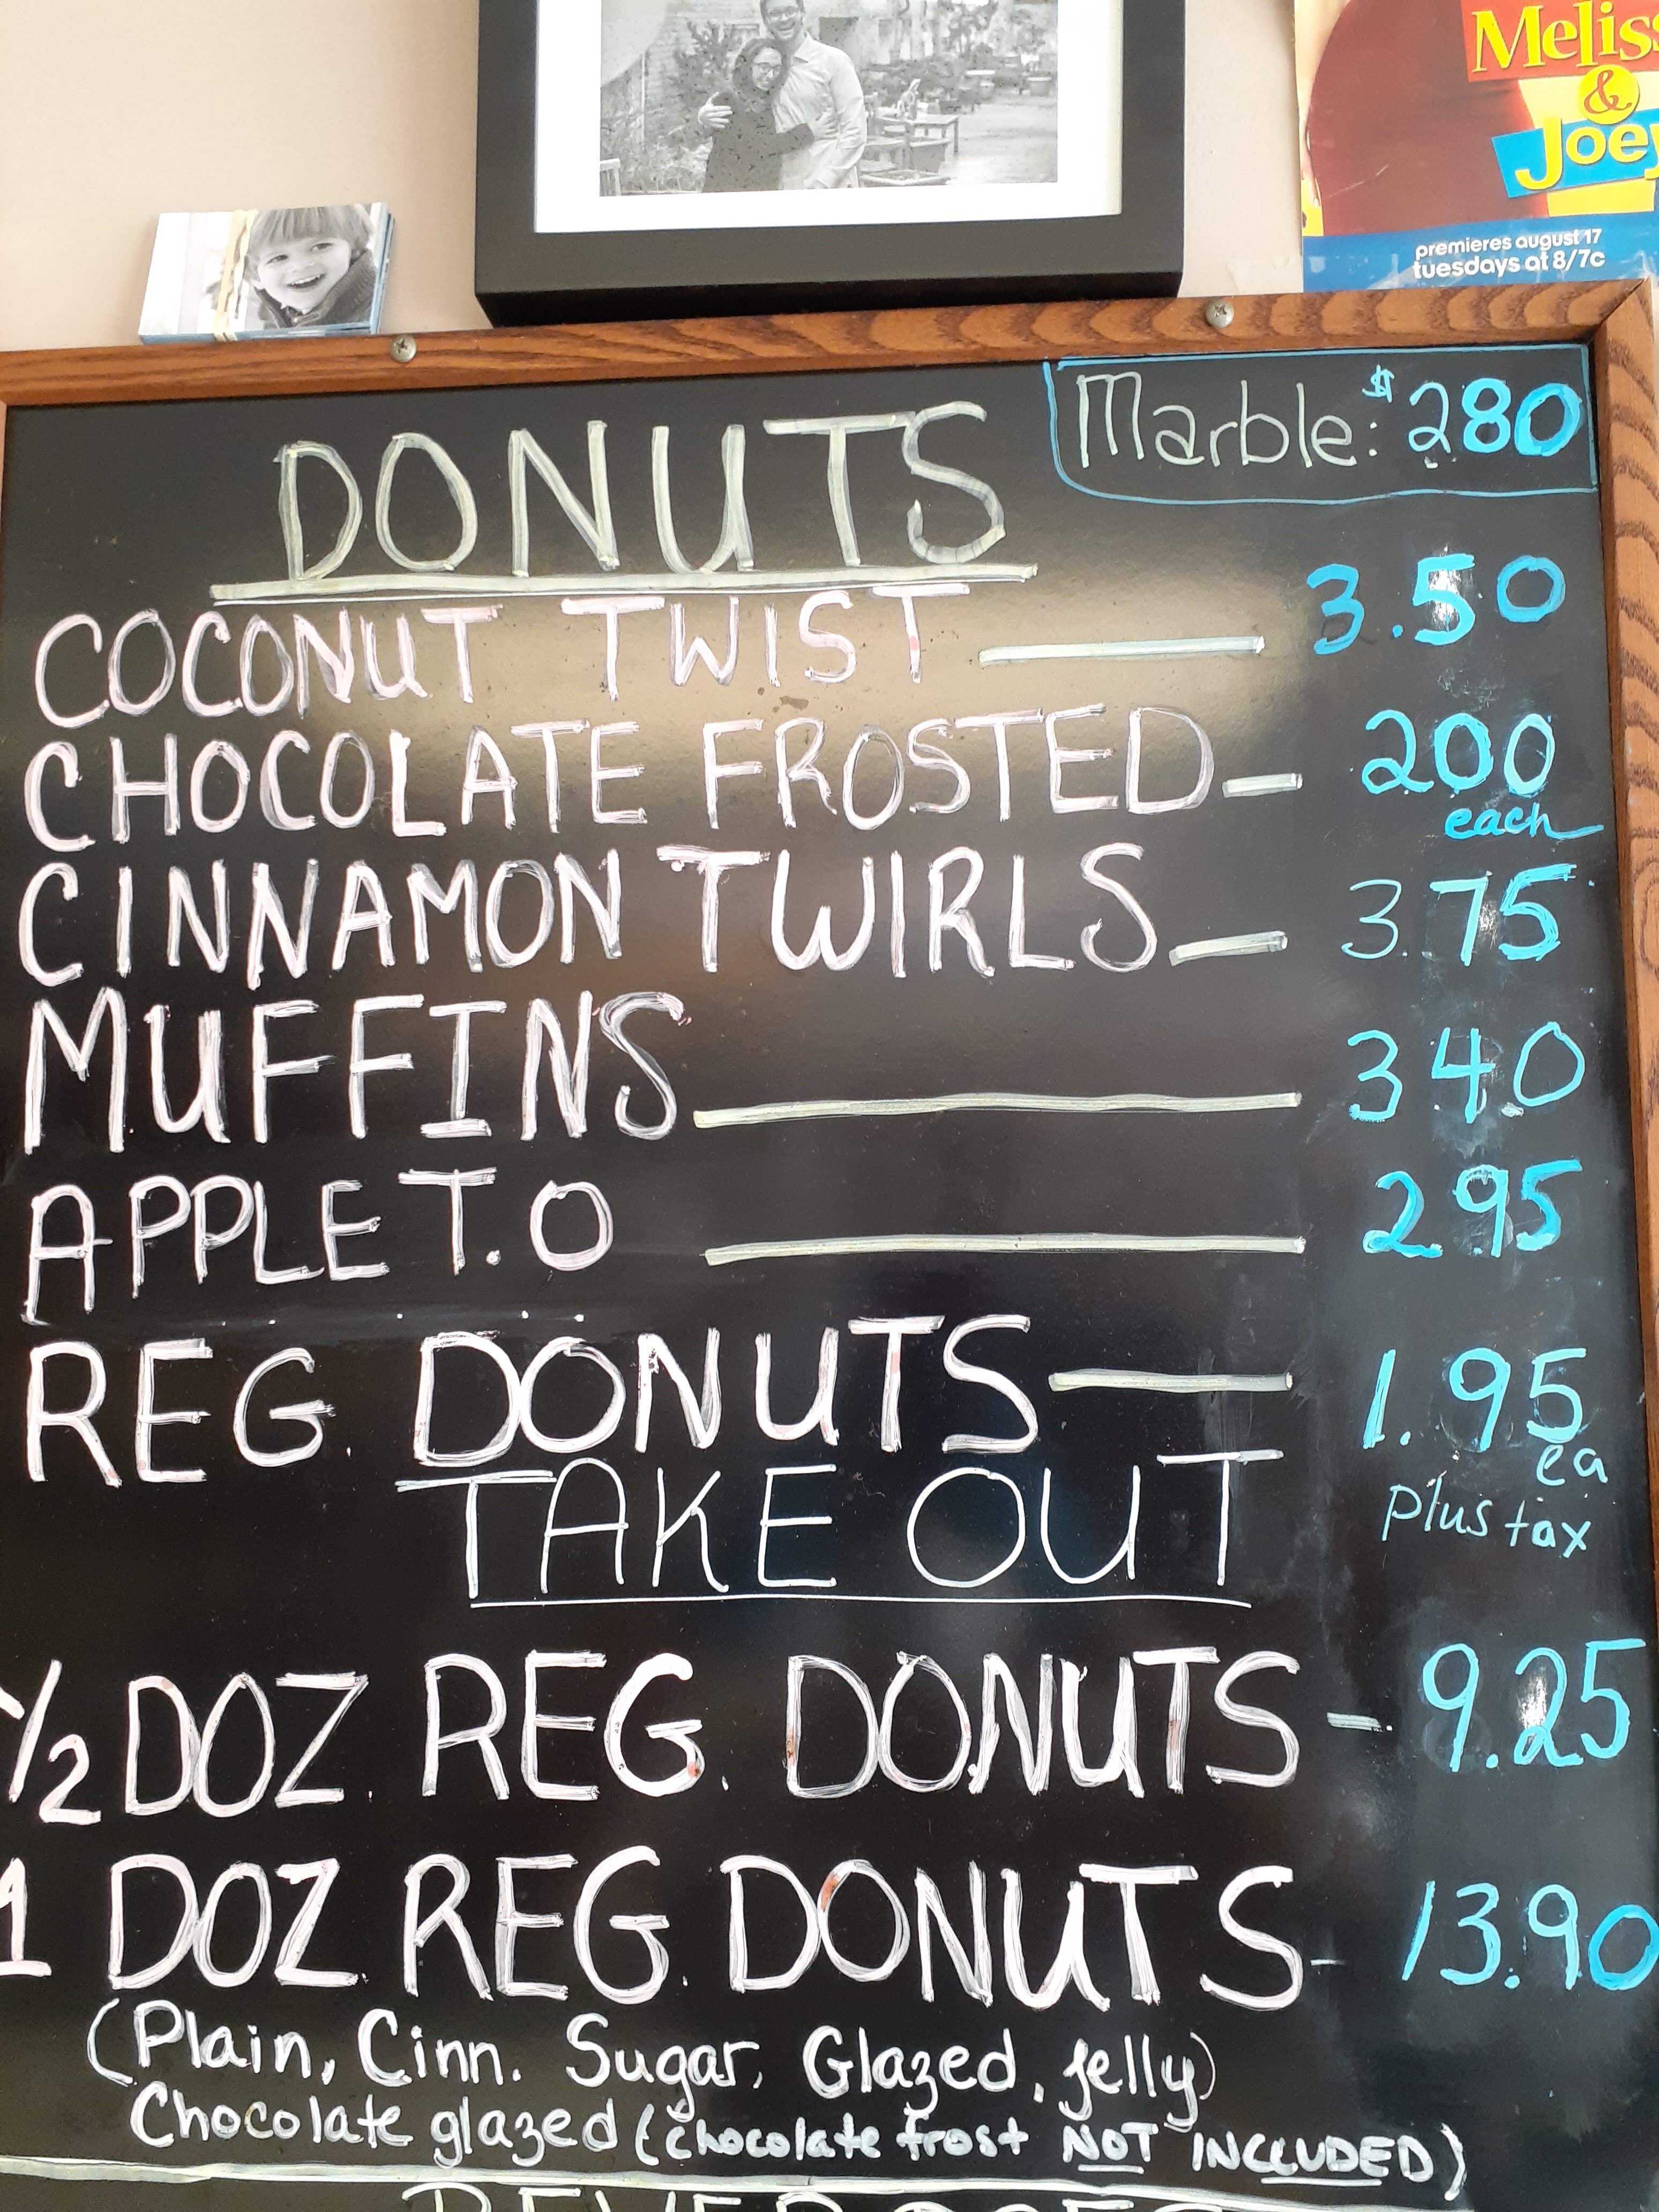 Melis
&
Joey
premieres august 17
tuesdays at 8/7c
Marble: $280
DONUTS
COCONUT TWIST 3.50
CHOCOLATE FROSTED 200
each
CINNAMON TWIRLS 3.75
MUFFINS 340
APPLE T.O 2.95
REG. DONUTS 1.95
ea
plus tax
TAKE OUT
1/2 DOZ. REG. DONUTS - 9.25
1 DOZ REG. DONUTS - 13.90
(Plain, Cinn. Sugar, Glazed, jelly)
Chocolate glazed (chocolate frost NOT INCLUDED)